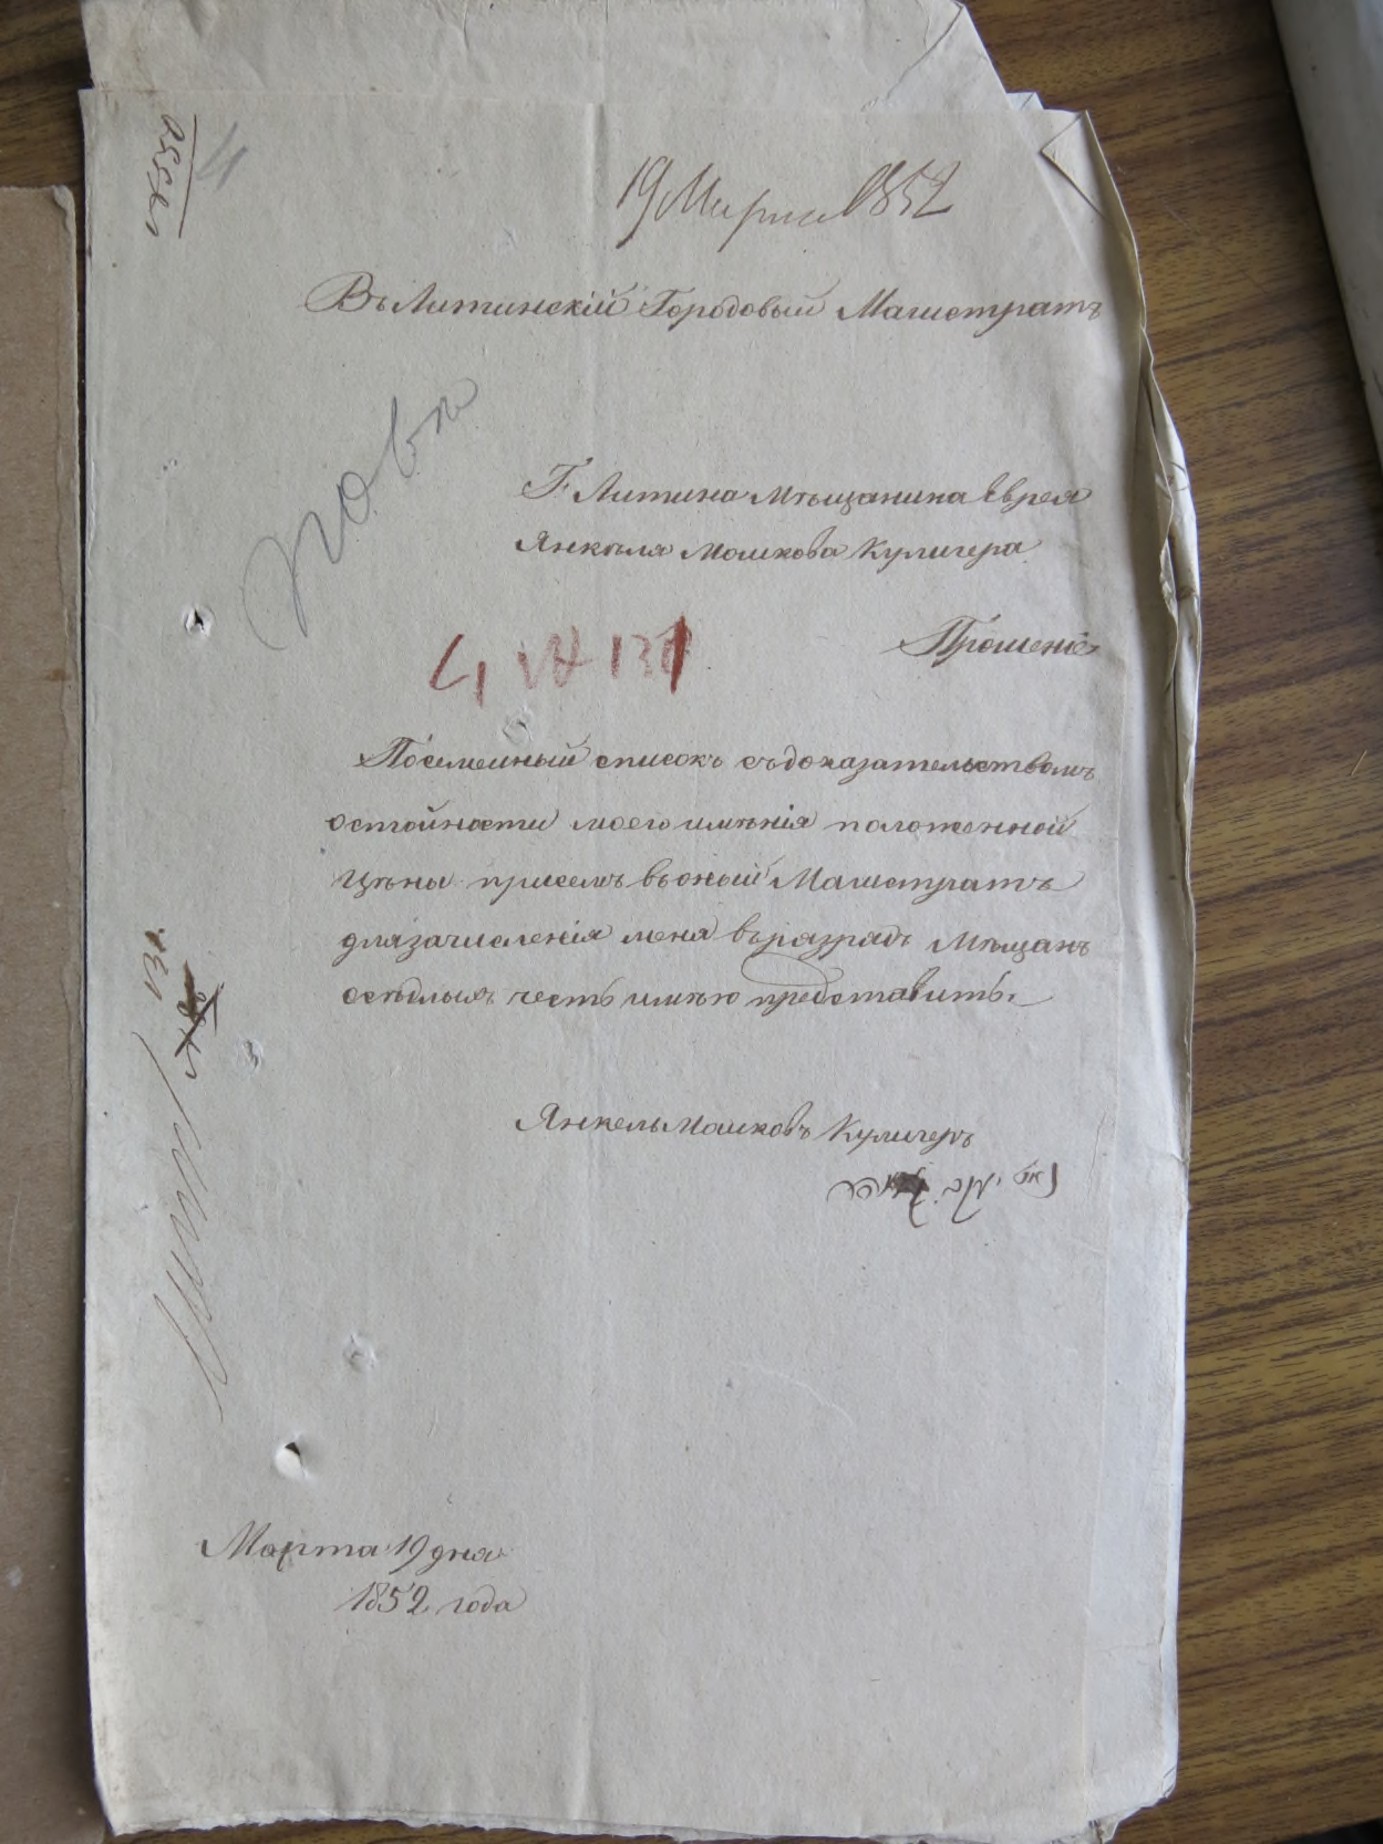 19 Марта 1852
Въ Литинскій Городовый Магистратъ
Г. Литина Мѣщанина Еврея
Янкеля Мошкова Кулигера
Прошеніе
Посемейный списокъ съ доказательствомъ
остойности моего имѣнія положенной
цѣны присемъ въ оный Магистратъ
для зачисленія меня въ разрядъ Мѣщанъ
осѣдлыхъ честь имѣю представить.
Янкель Мошковъ Кулигеръ
Марта 19 дня
1852 года